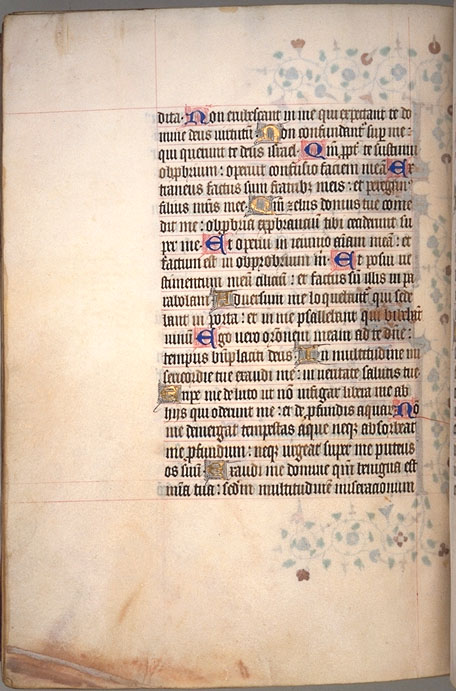 dita. Non erubescant in me qui expectant te do
mine deus virtutū. Non confundant' sup me:
qui querunt te deus israel. Qm̄ ppt' te sustinui
obprbrium: operuit confusio faciem meā Ex
traneus factus sum fratribꝫ meis: et peregrin'
filiis mr̄is mee. Qm̄ zelus domus tue come
dit me: obprobria exprobrantiū tibi ceciderunt su
per me. Et operui in ieiunio aīam meā: et
factum est in obprobrium m. Et posui ve
stimentum meū ciliciū: et factus sū illis in pa
rabolam Adversum me loquebant' qui sede
bant in porta: et in me psallebant qui bibebāt
vinum Ego vero orōnem meam ad te dn̄e:
tempus bn̄placiti deus In multitudine mi
sericordie tue exaudi me: in veritate salutis tue
Eripe me de luto ut nō infigar libera me ab
hijs qui oderunt me: et de pfundis aquar' No
me demergat tempestas aque neqꝫ absorbeat
me pfundum: neqꝫ urgeat super me puteus
os suū Exaudi me domine qm̄ benigna est
mīa tua: scdm̄ multitudinē miseracionum